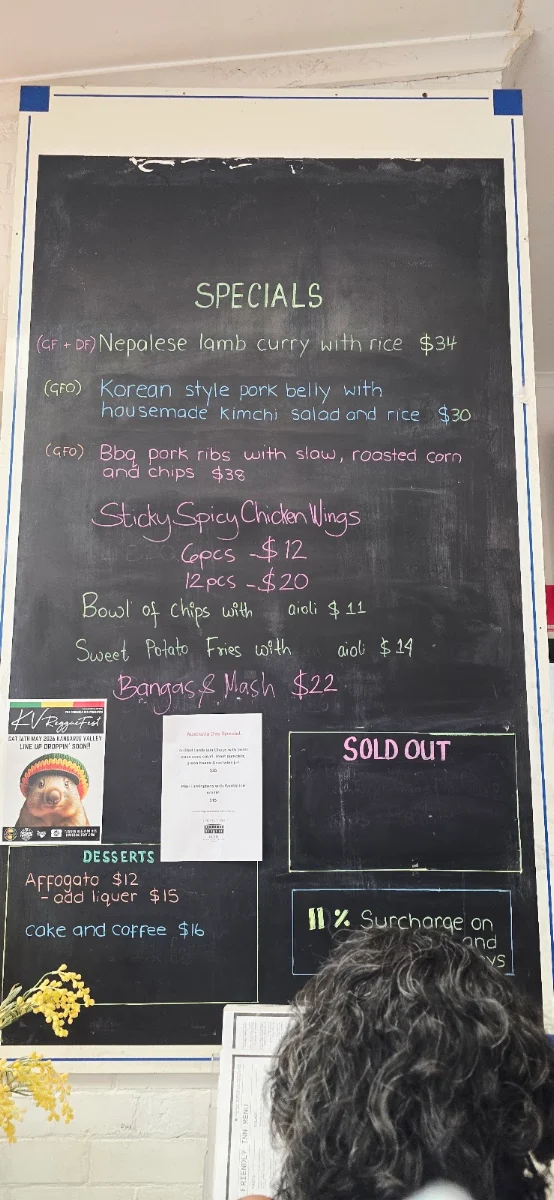 SPECIALS
(GF + DF) Nepalese lamb curry with rice $34
(GFO) Korean style pork belly with
housemade kimchi salad and rice $30
(GFO) Bbq pork ribs with slaw, roasted corn
and chips $38
Sticky Spicy Chicken Wings
6pcs - $12
12pcs - $20
Bowl of chips with aioli $11
Sweet Potato Fries with aioli $14
Bangas & Mash $22
KV ReggaeFest
SAT 16TH MAY 2026 KANGAROO VALLEY
LINE UP DROPPIN' SOON!!
SOLD OUT
DESSERTS
Affogato $12
- add liquer $15
cake and coffee $16
11% Surcharge on
and
ys
FRIENDLY INN MENU